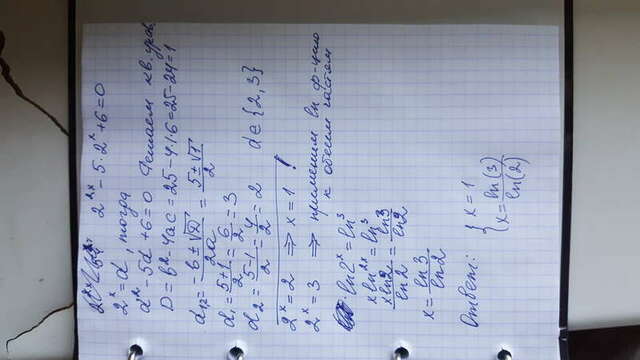 2^{2x} - 5·2^x + 6 = 0
2^x = d, тогда
d^2 - 5d + 6 = 0 Решаем кв. урав.
D = b^2 - 4ac = 25 - 4·1·6 = 25 - 24 = 1
d_{12} = \frac{-b ± √D}{2a} = \frac{5 ± √1}{2}
d_1 = \frac{5+1}{2} = \frac{6}{2} = 3
d_2 = \frac{5-1}{2} = \frac{4}{2} = 2 d ∈ {2, 3}
2^x = 2 ⇒ x = 1 !
2^x = 3 ⇒ применим ln ф-цию
к обеим частям
ln2^x = ln^3
x ln^{2x} = ln^3
\frac{x ln2}{ln2} = \frac{ln3}{ln2}
x = \frac{ln3}{ln2}
Ответ: { x = 1
x = \frac{ln(3)}{ln(2)}